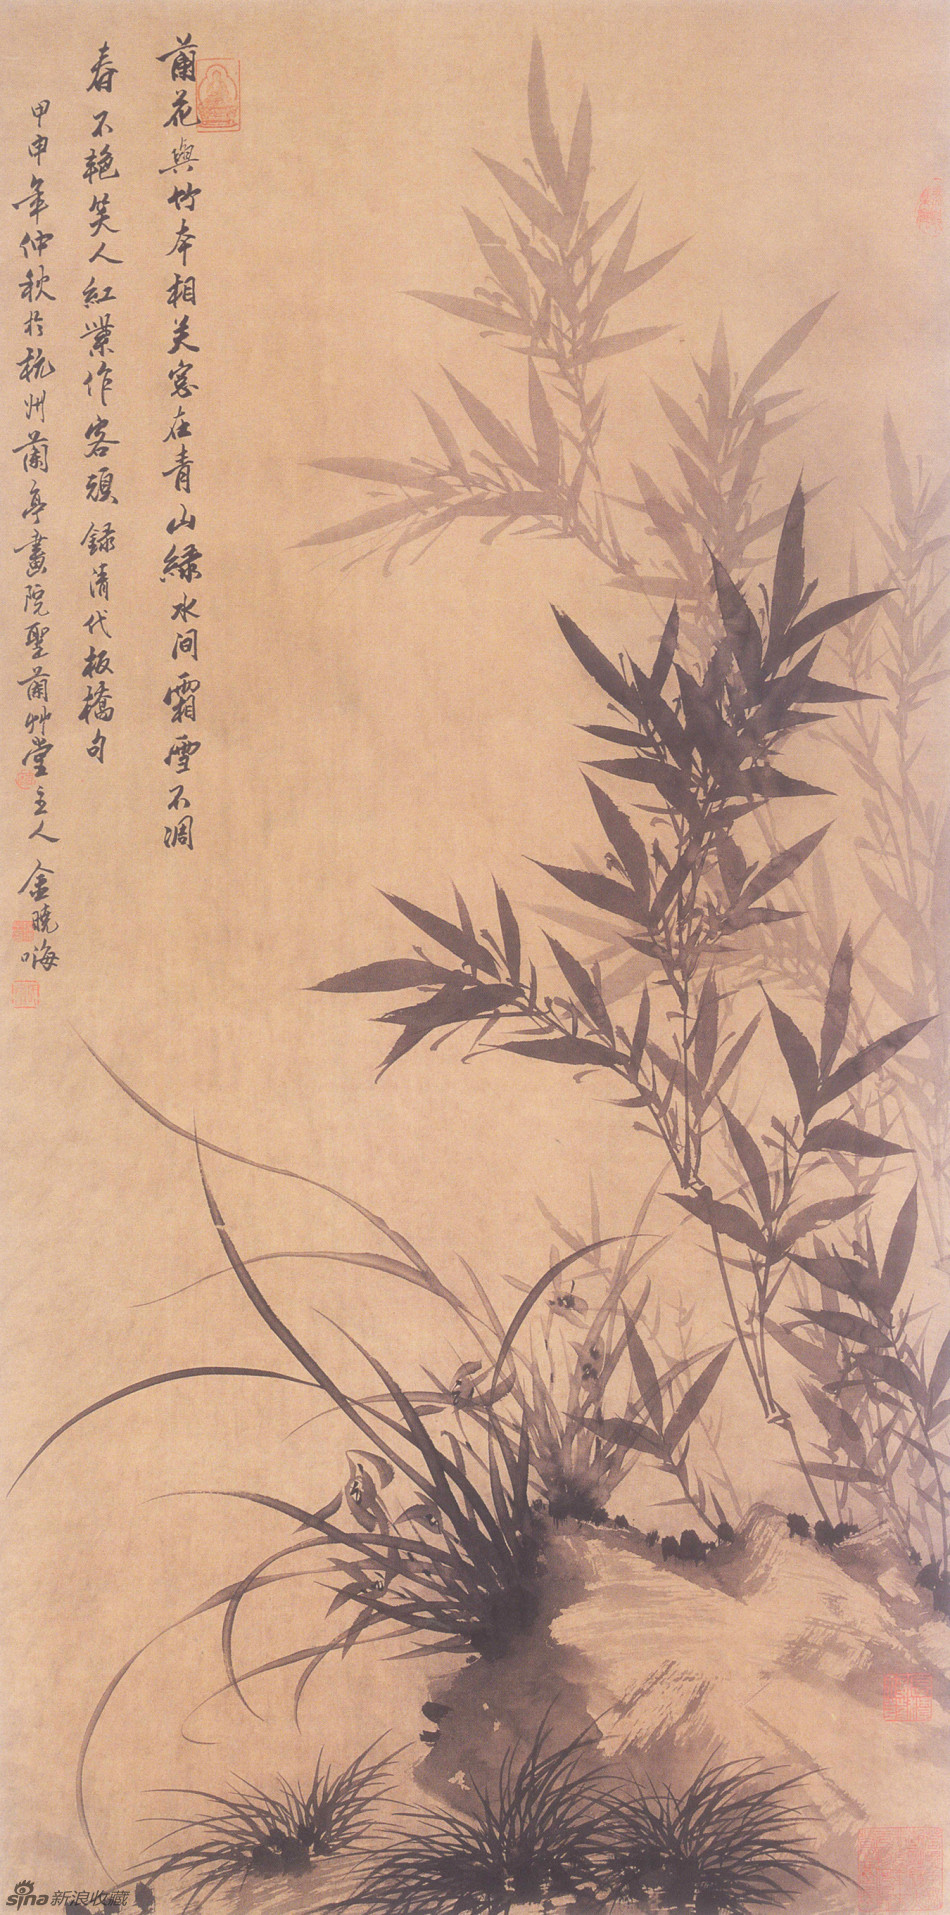 蘭花與竹本相关窓在青山绿水间霜雪不凋
春不艳笑人紅葉作客顔録清代板橋句
甲申年仲秋於杭州蘭亭畫院聖蘭艸堂主人金曉海
sina新浪收藏